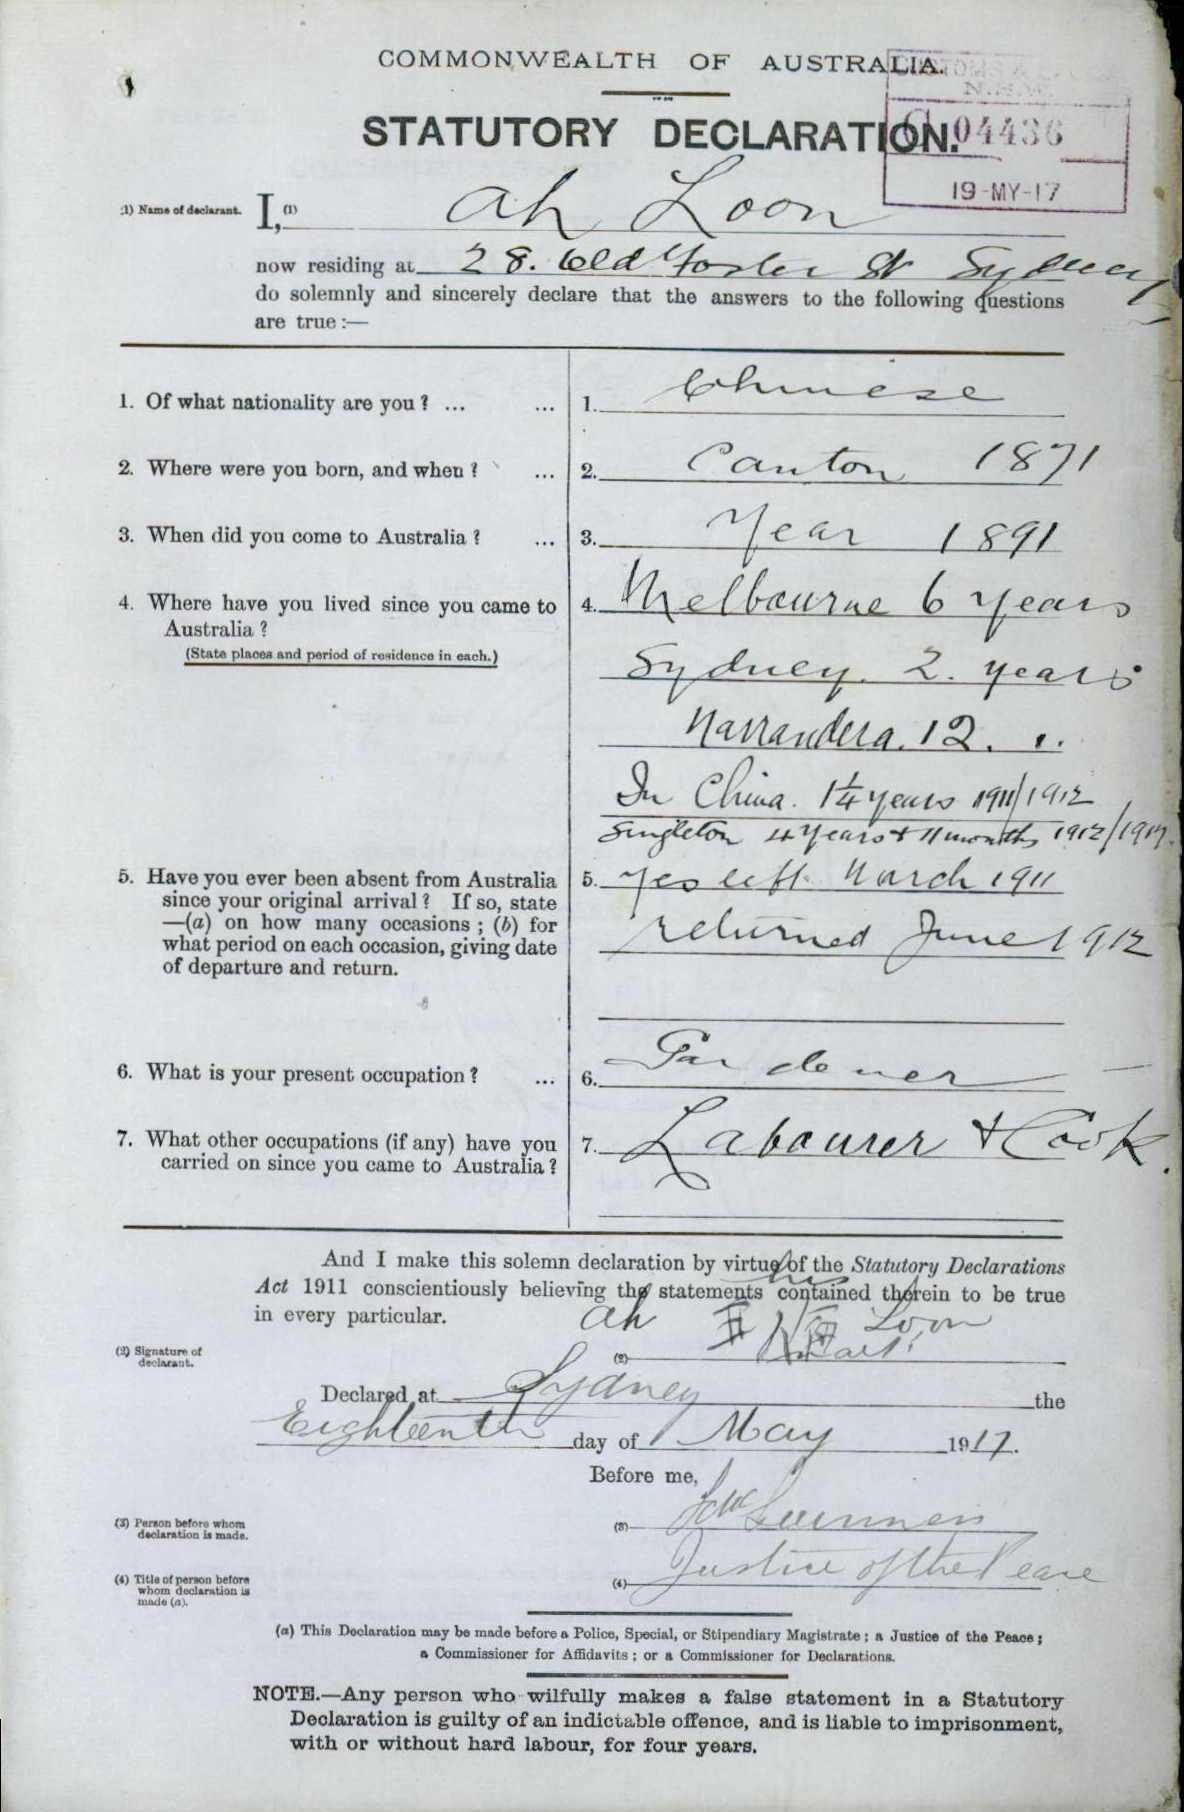 COMMONWEALTH OF AUSTRALIA.
CUSTOMS &
N.S.W.
STATUTORY DECLARATION.
C 04436
19-MY-17
(1) Name of declarant. I,(1) Ah Loon
now residing at 28. Old Foster St Sydney
do solemnly and sincerely declare that the answers to the following questions
are true :—
1. Of what nationality are you ? ... ... 1. Chinese
2. Where were you born, and when ? ... 2. Canton 1871
3. When did you come to Australia ? ... 3. Year 1891
4. Where have you lived since you came to 4. Melbourne 6 years
Australia ?
(State places and period of residence in each.)
Sydney. 2. years
Narrandera. 12. ,,.
In China. 1¼ years 1911/1912
Singleton 4 years + 11 months 1912/1917.
5. Have you ever been absent from Australia 5. Yes left March 1911
since your original arrival ? If so, state
—(a) on how many occasions ; (b) for
what period on each occasion, giving date returned June 1912
of departure and return.
6. What is your present occupation ? ... 6. Gardener —
7. What other occupations (if any) have you 7. Labourer + Cook.
carried on since you came to Australia ?
And I make this solemn declaration by virtue of the Statutory Declarations
Act 1911 conscientiously believing the statements contained therein to be true
in every particular.
his
Ah Loon
mark
(2) Signature of
declarant.
(2)
Declared at Sydney the
Eighteenth day of May 1917.
Before me,
(3) Person before whom
declaration is made.
(3)
(4) Title of person before
whom declaration is
made (a).
(4) Justice of the Peace
(a) This Declaration may be made before a Police, Special, or Stipendiary Magistrate ; a Justice of the Peace ;
a Commissioner for Affidavits ; or a Commissioner for Declarations.
NOTE.—Any person who wilfully makes a false statement in a Statutory
Declaration is guilty of an indictable offence, and is liable to imprisonment,
with or without hard labour, for four years.